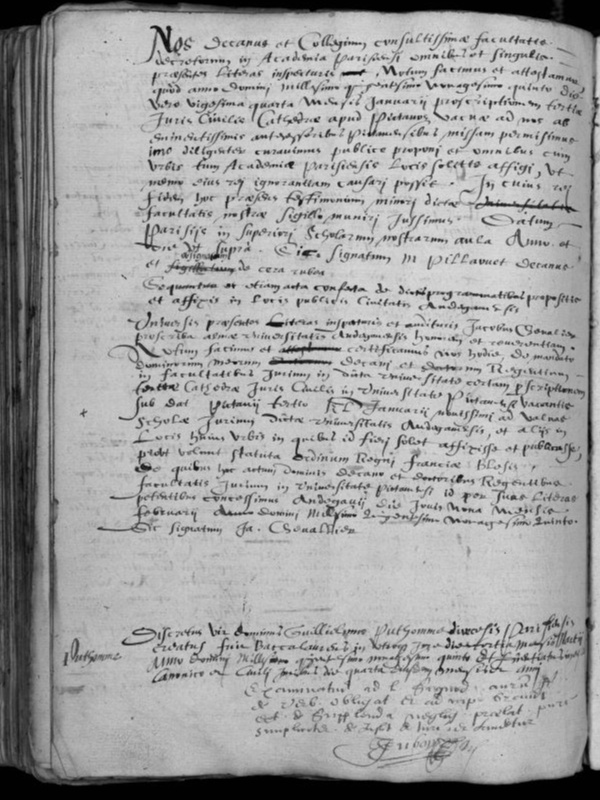 Nos Decanus et Collegium consultissimæ facultatis
decretorum in Academia Parisiensi omnibus et singulis
præsentes literas inspecturis Notum facimus et attestamur
quod anno domini millesimo quingentesimo nonagesimo quinto die
vero vigesima quarta mensis Januarii proscriptionem tertiæ
Juris Civilis Cathedræ apud Pictavos vacuæ ad nos ab
eminentissimis antecessoribus Pictavensibus missam permisimus
imo diligenter curavimus publice proponi et omnibus cum
urbis tum Academiæ Parisiensis locis solitis affigi, ut
nemo eius rei ignorantiam causari possit. In cuius rei
fidem hoc præsens testimonium minori dictæ
facultatis nostræ sigillo muniri Jussimus. Datum
Parisiis in superiori scholarum nostrarum aula Anno et
die ut supra. Sic signatum M Pillavuet decanus
et sigillatum de cera rubra
Sequuntur et etiam acta confecta de programmatibus propositis
et affixis in locis publicis Civitatis Andegavensis
Universis præsentes Literas inspecturis et audituris Jacobus Chevalier
scriba almæ Universitatis Andegavensis honorem et reverentiam.
Notum facimus et certificamus nos hodie, de mandato
dominorum meorum decani et doctorum Regentium
in facultatibus Jurium in dicta Universitate certam proscriptionem
tertiæ Cathedræ Juris Civilis in Universitate Pictavensi vacantis
sub dat Pictavii tertio Januarii novissimi ad valvas
Scholæ Jurium dictæ Universitatis Andegavensis, et aliis in
Locis huius urbis in quibus id fieri solet affixisse et publicasse,
prout volunt statuta ordinum Regni Franciæ Blesis
de quibus hoc actum dominis decano et doctoribus Regentibus
facultatis Jurium in Universitate Pictavensi id per suas literas
petentibus concessimus Andegavii die Jovis nona mensis
februarii Anno domini Millesimo Quingentesimo Nonagesimo Quinto.
Sic signatum Ja. Chevallier
Puthomme
Discretus vir dominus Guillielmus Puthomme diocesis Parisiensis
creatus fuit Baccalaureus in utroque Jure die tertia mensis Martii
Anno domini Millesimo quingentesimo nonagesimo quinto et Licentiatus in
Canonico et Civili Juribus die quarta eiusdem mensis et anni
Examinatus ad l.
de verb. obligat. et ad cap.
simpliciter